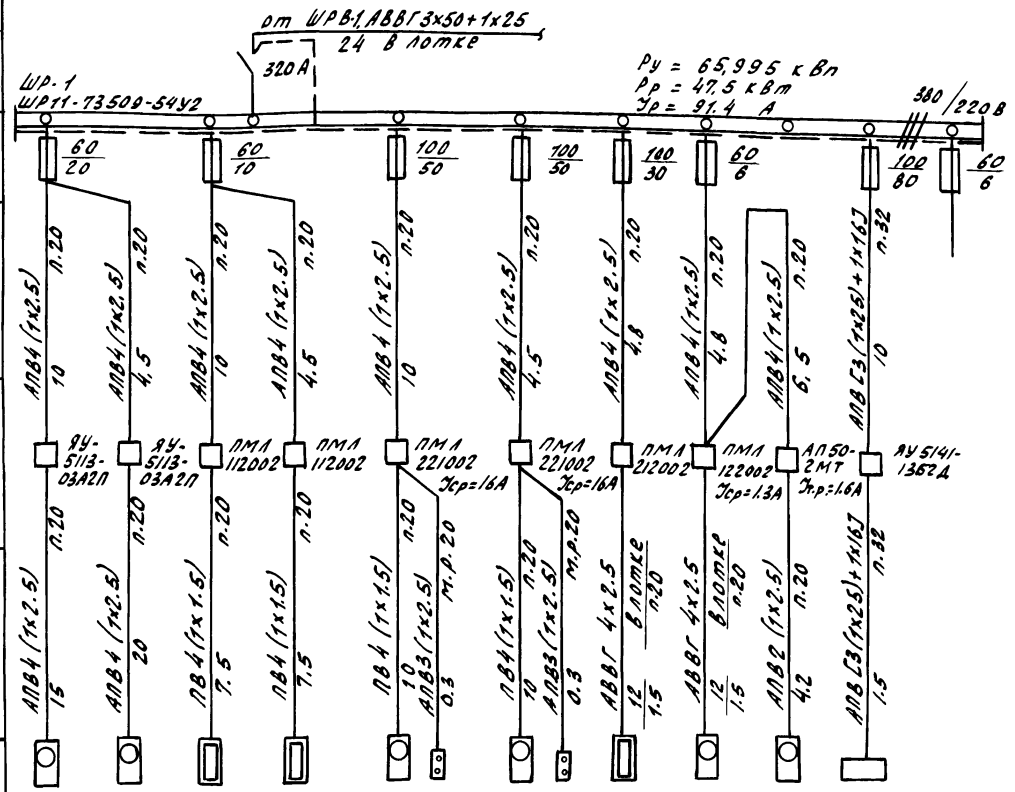 от ШРВ-1, АВВГ 3х50+1х25
24 в лотке
320А
Ру = 65,995 кВт
Рр = 47,5 кВт
Iр = 91.4 А
ШР-1
ШР11-73509-54У2
380/220В
60/20
60/10
100/50
100/50
100/30
60/6
100/80
60/6
АПВ4 (1х2.5) п.20
10
АПВ4 (1х2,5) п.20
4,5
АПВ4 (1х2.5) п.20
10
АПВ4 (1х2.5) п.20
4.5
АПВ4 (1х2.5) п.20
10
АПВ4 (1х2.5) п.20
4.5
АПВ4 (1х2.5) п.20
4.8
АПВ4 (1х2.5) п.20
4.8
АПВ4 (1х2.5) п.20
6,5
АПВ [3(1х25)+1х16] п.32
10
ЯУ-
5113-
03А2П
ЯУ-
5113-
03А2П
ПМЛ
112002
ПМЛ
112002
ПМЛ
221002
Iср=16А
ПМЛ
221002
Iср=16А
ПМЛ
212002
ПМЛ
122002
Iср=1.3А
АП50-
2МТ
Iт.р=1.6А
ЯУ5141-
13Б2Д
АПВ4 (1х2.5) п.20
15
АПВ4 (1х2.5) п.20
20
ПВ4 (1х1.5) п.20
7.5
ПВ4 (1х1.5)
7.5
ПВ4 (1х1.5) п.20
10
АПВ3 (1х2.5) м.р.20
0.3
ПВ4 (1х1.5) п.20
10
АПВ3 (1х2.5) м.р.20
0.3
АВВГ 4х2.5 в лотке/п.20
12/1.5
АВВГ 4х2.5 в лотке/п.20
12/1.5
АПВ2 (1х2.5) п.20
4.2
АПВ [3(1х25)+1х16] п.32
1.5